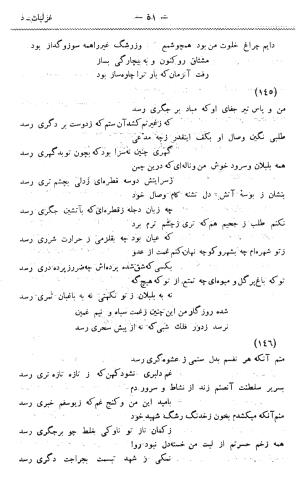 غزلیات ـ د
ـ ۵۱ ـ
دایم چراغ خلوت من بود همچو شمع وز رشگ غیر اهمه سوز و گداز بود
مشتاق رو کنون و به بیچارگی بساز
رفت آنزمان که یار ترا چاره ساز بود
(۱۴۵)
من و یاس تیر جفای او که مباد بر جگری رسد
که زغیرتم کشد آن ستم که زدوست بر دگری رسد
طلبی نگین وصال او بکف اینقدر زچه مدعی
گهری چنین نه سزا بود که بچون تو بدگهری رسد
همه بلبلان و سرود خوش من و ناله‌ای که درین چمن
زسرایتش دوسه قطره‌ای زدلی بچشم تری رسد
بنشان ز بوسهٔ آتش دل تشنه کام وصال خود
چه زیان دجله ز قطره‌ای که بآتشین جگری رسد
نکنم طلب ز جحیم هم که تری زچشم ترم برد
که عیان بود چه بقلزمی ز حرارت شرری رسد
زتو شهره‌ام چه بشهر و کو چه نهان کنم غمت از عدو
بکسی که شق شده پرده‌اش چه ضرر ز پرده دری رسد
تو که باغ پر گل و میوه‌ای چه تمتع از تو که هیچگه
نه به بلبلان ز تو نکهتی نه به باغبان ثمری رسد
شده روز گاو من این چنین زغمت سیاه و نیم غمین
نرسد زدور فلك شبی که نه از پیش سحری رسد
(۱۴۶)
منم آنکه هر نفسم بدل ستمی ز عشوه گری رسد
غم دلبری نشود کهن که ز تازه تازه تری رسد
بسریر سلطنت آنصنم زند از نشاط و سرور دم
بامید این من و کنج غم که زیوسفم خبری رسد
منم آنکه میکشدم بخون زخدنگ رشگ شهید خود
گذری شکار تو ناوکی غلط چو بر جگری رسد
همه زخم حسرتم از لبت من خسته دل نبود روا
نمکی ز شهد تبسمت بجراحت دگری رسد